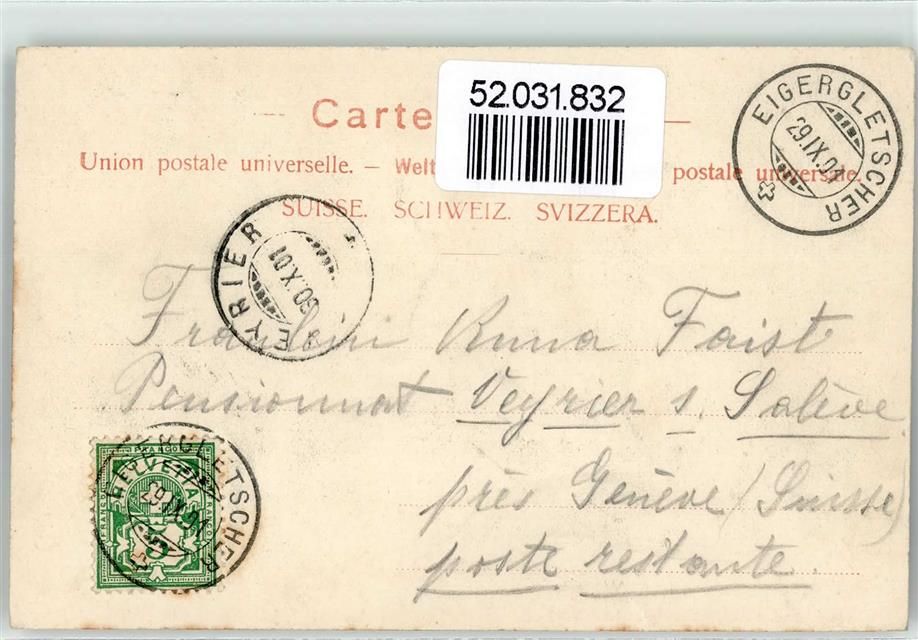 52.031.832
Carte
Union postale universelle. — Welt postale universale.
SUISSE. SCHWEIZ. SVIZZERA.
EIGERGLETSCHER
29.IX.01
VEYRIER
X.01
Fräulein Anna Faist
Pensionnat Veyrier s. Salève
près Genève (Suisse)
poste restante.
EIGERGLETSCHER
29.IX.01
FRANCO
HELVETIA
5